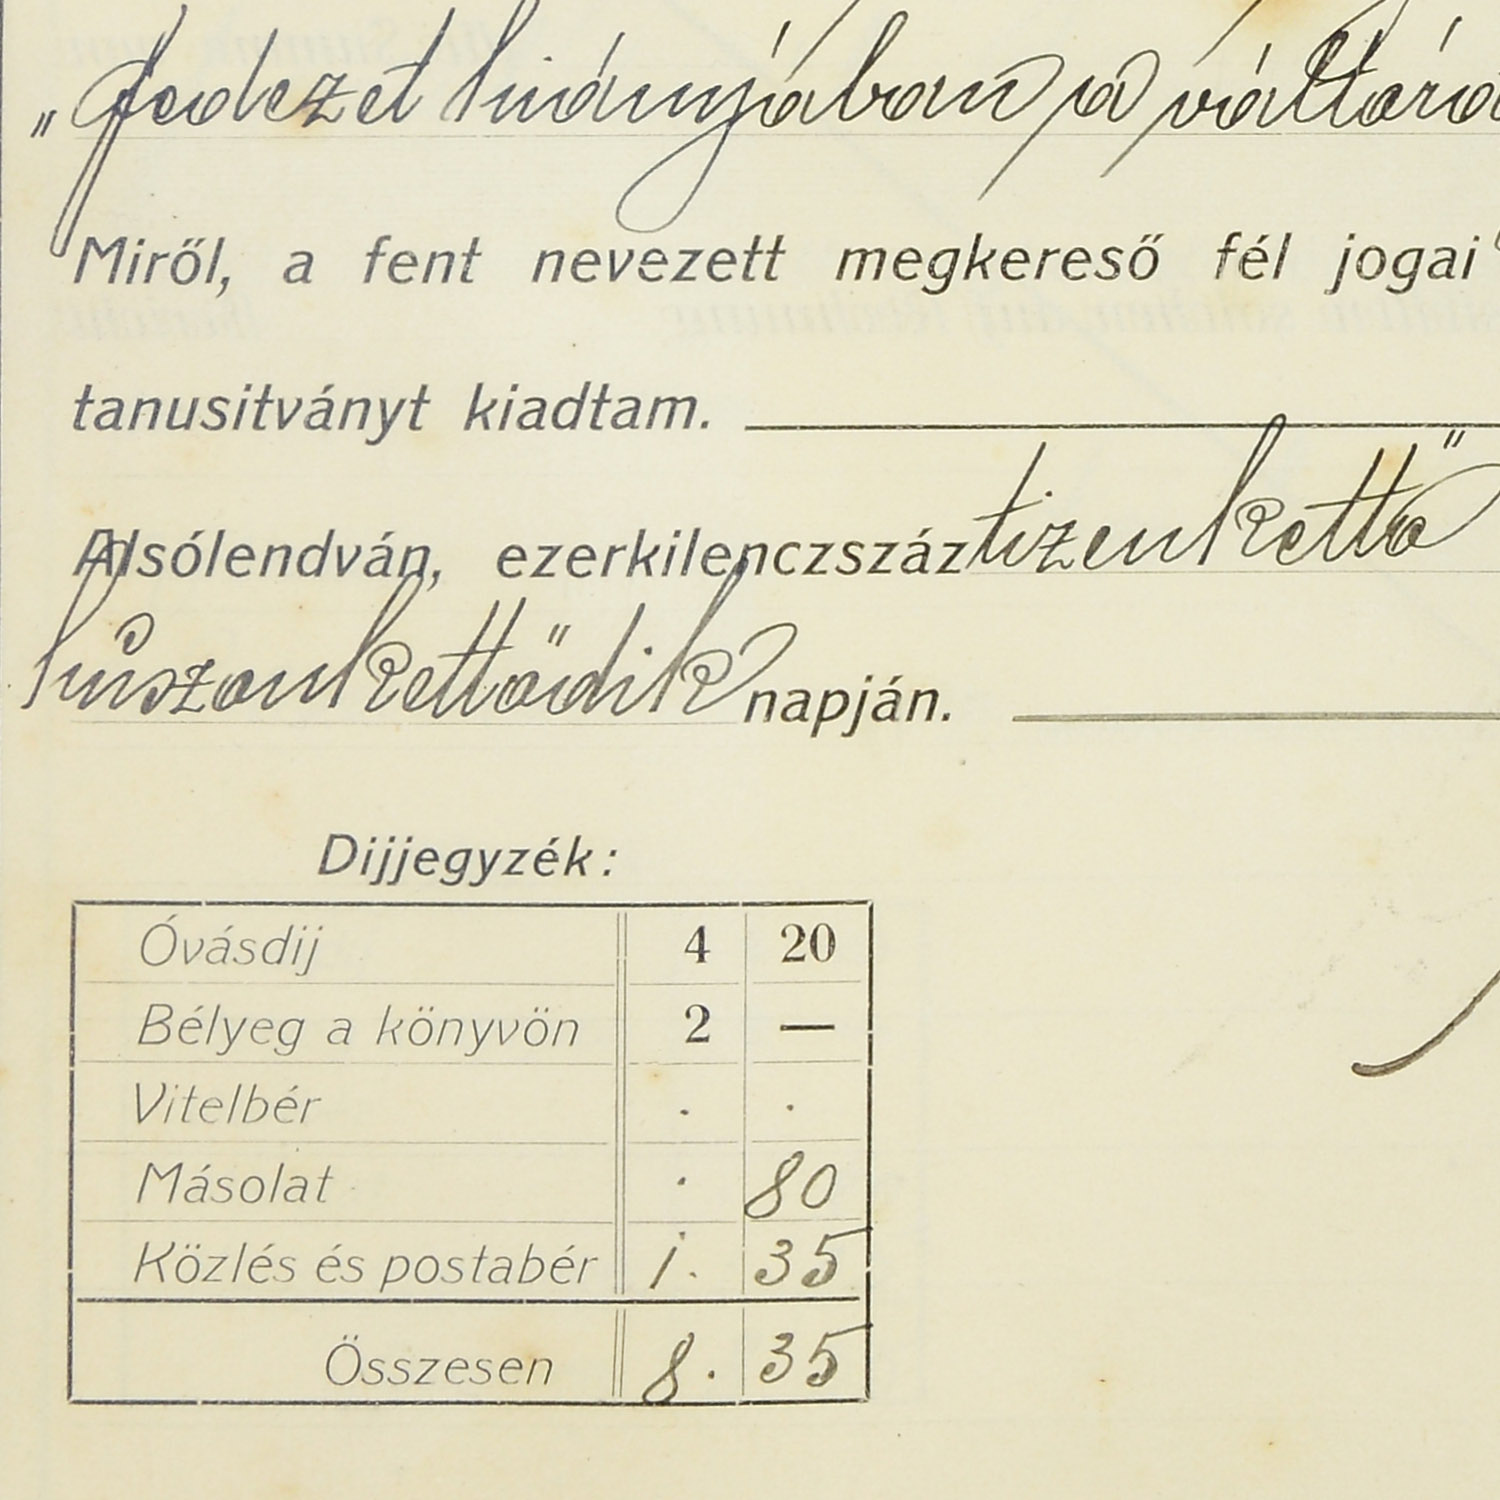 „fedezet hiányában a váltóra
Miről, a fent nevezett megkereső fél jogai
tanusitványt kiadtam.
Alsólendván, ezerkilenczszáz tizenkettő
húszonkettödik napján.
Dijjegyzék:
Óvásdij 4 20
Bélyeg a könyvön 2 —
Vitelbér . .
Másolat . 80
Közlés és postabér 1. 35
Összesen 8. 35